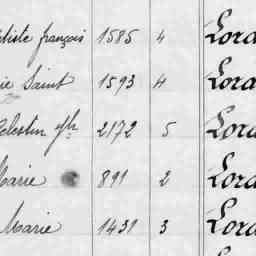 tiste français 1585 4 Lora
ie Saint 1593 4 Lora
elestin 2172 5 Lora
Marie 891 2 Lora
Marie 1431 3 Lora